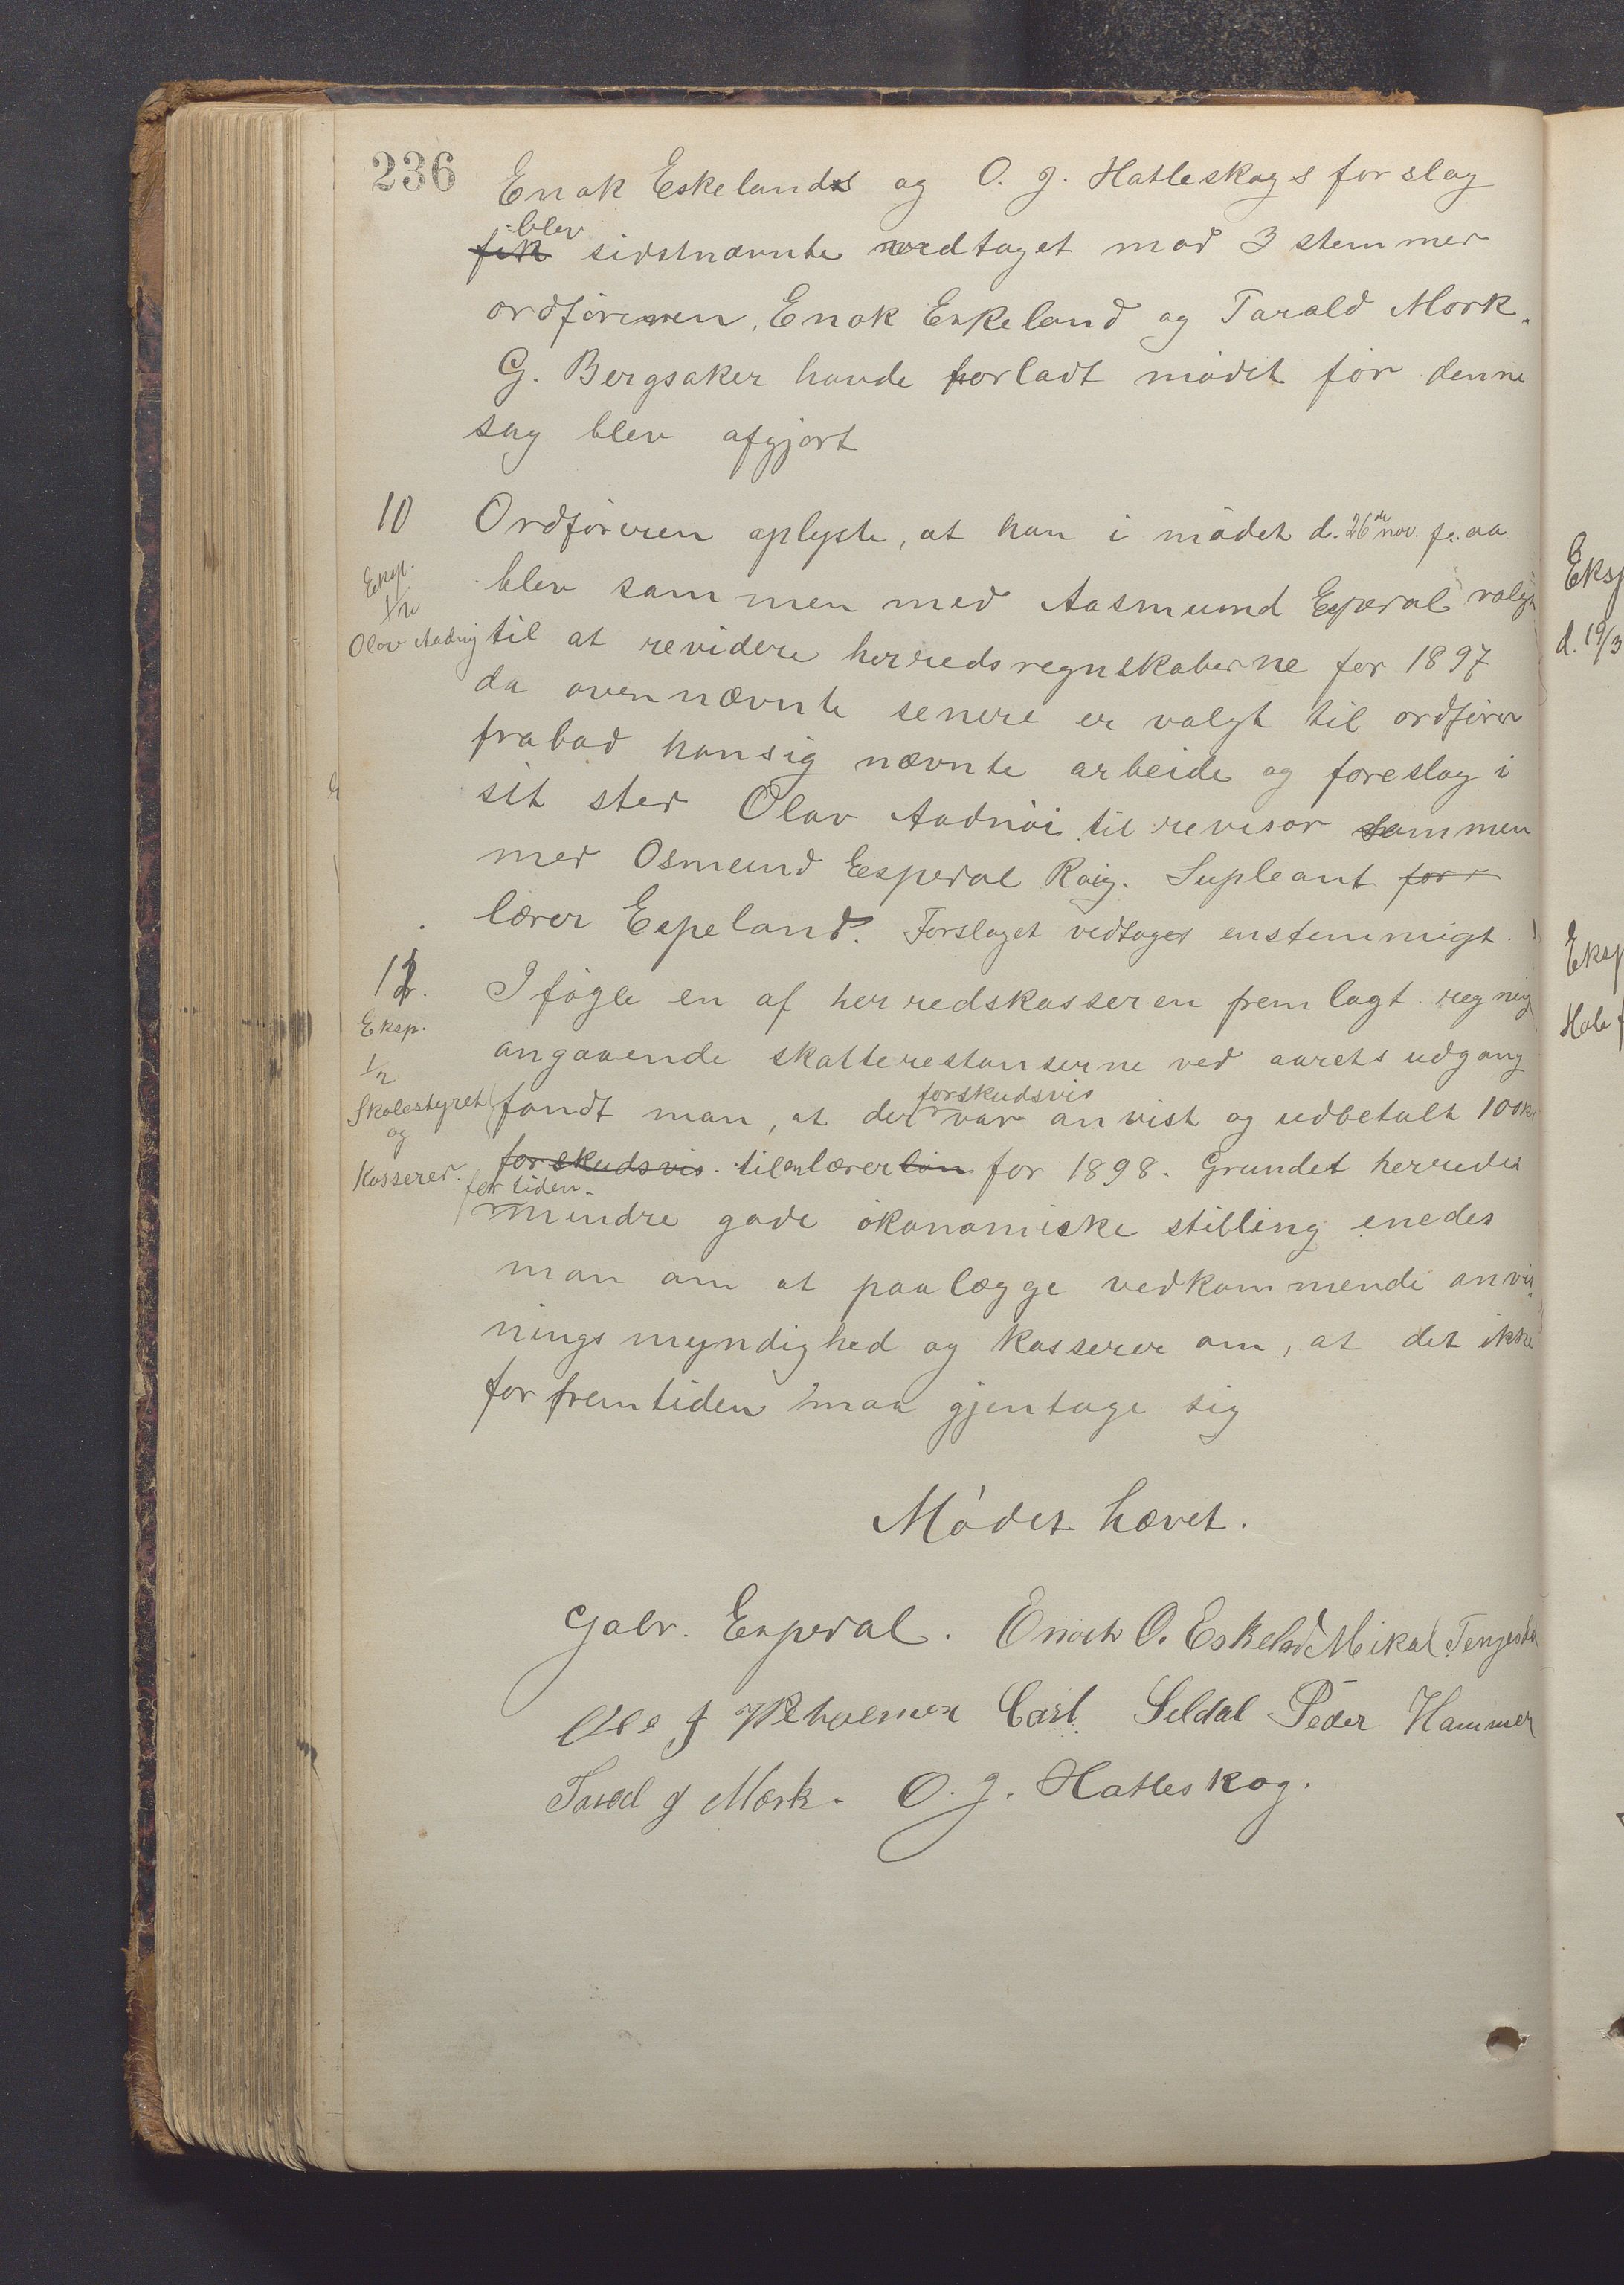 236
Enok Eskelands og O. J. Hatleskogs forslag
blev
fik sidstnævnte vedtaget mod 3 stemmer
ordføreren, Enok Eskeland og Tarald Mørk.
G. Bergsaker havde forladt mødet før denne
sag blev afgjort
10 Ordføreren oplyste, at han i mødet d. 26de nov. f. aa
Eksp.
blev sammen med Aasmund Espedal valgt
Olav Aadnøj til at revidere herredsregnskaberne for 1897
da ovennævnte senere er valgt til ordfører
frabad han sig nævnte arbeide og foreslog i
sit sted Olav Aadnøi til revisor sammen
med Osmund Espedal Raig. Supleant for
lærer Espeland. Forslaget vedtages enstemmigt.
11. Ifølge en af herredskasseren fremlagt regning
Eksp.
angaaende skatterestanserne ved aarets udgang
1/2
forskudsvis
Skolestyret fandt man, at der var anvist og udbetalt 100 kr
og
Kasserer. forskudsvis til en lærer løn for 1898. Grundet herredets
for tiden
mindre gode økonomiske stilling enedes
man om at paalægge vedkommende anvis
nings myndighed og kasserer om, at det ikke
for fremtiden maa gjentage sig
Mødet hævet.
Gabr. Espedal. Enok O. Eskeland Mikal Tengesdal
Ole J Carl Seldal Peder Hammer
Tarald J Mørk. O. J. Hatleskog.
Eksp
d. 19/3
Eksp